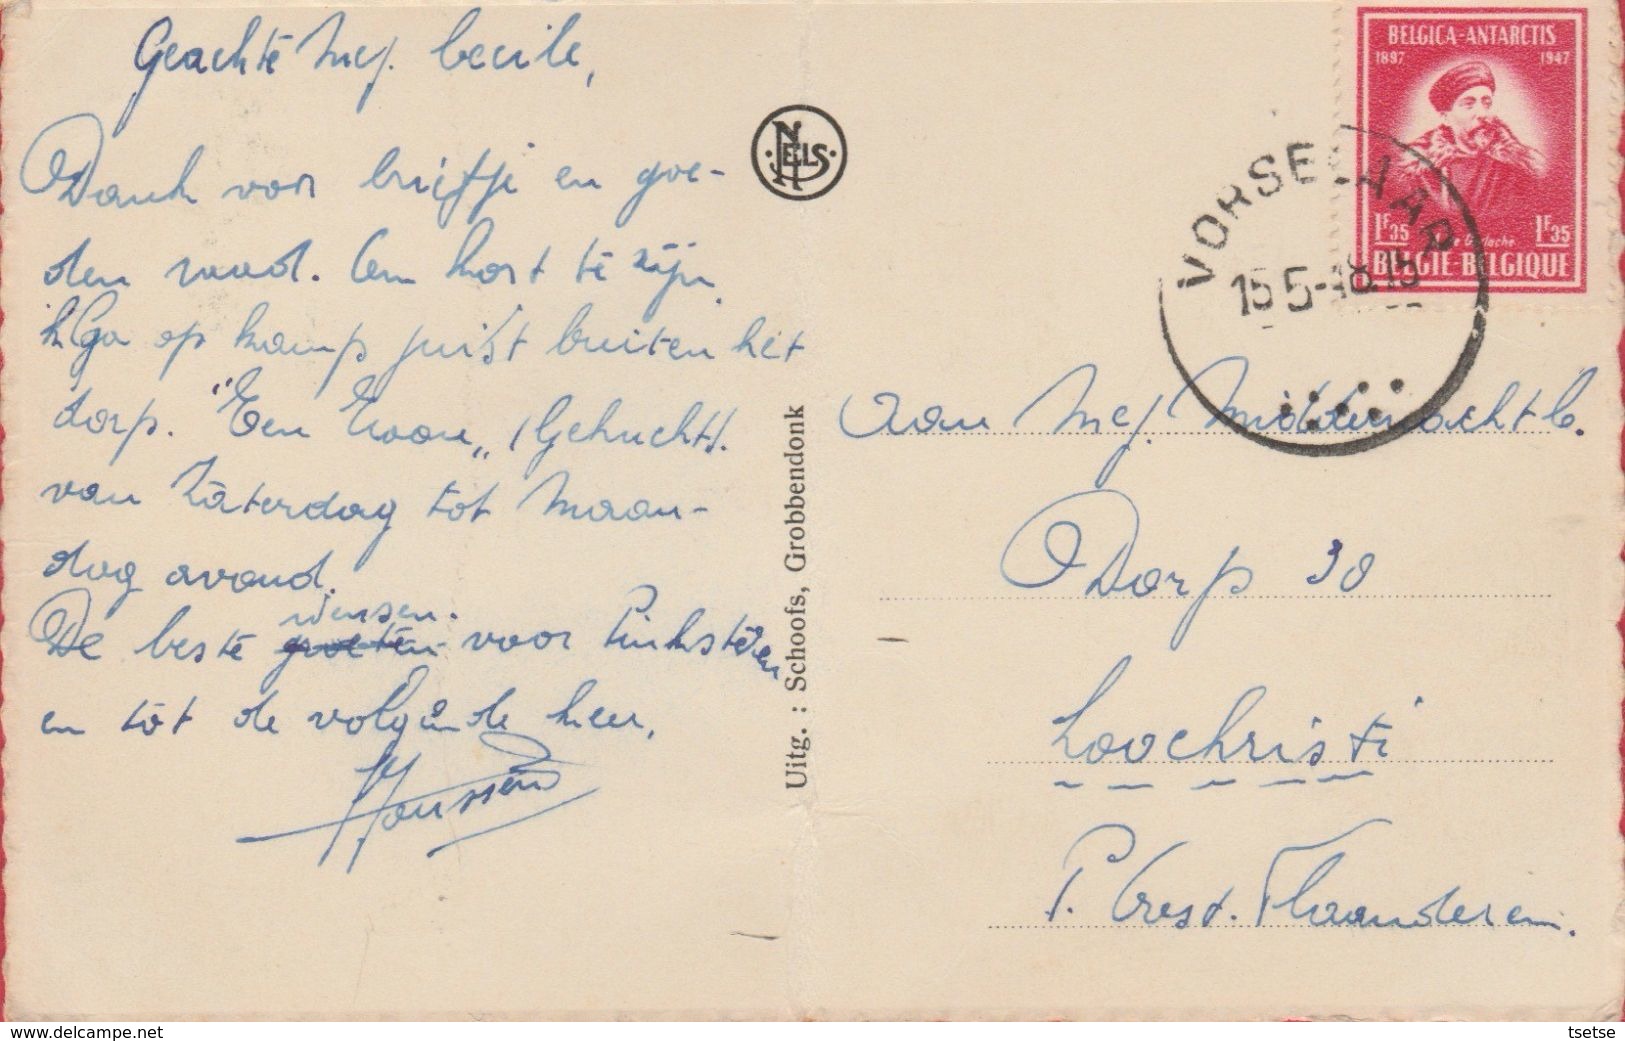 Geachte Mej. Cecile,
Dank voor briefje en goe-
den raad. Om kort te zijn,
ik ga op kamp juist buiten het
dorp. "Een Zwaan" (Gehucht).
van Zaterdag tot Maan-
dag avond.
wensen.
De beste groeten voor Pinksteren
en tot de volgende keer,
NELS
Uitg. : Schoofs, Grobbendonk
BELGICA-ANTARCTIS
1897 1947
1F35 de Gerlache 1F35
BELGIE-BELGIQUE
VORSELAAR
15 5-48 15
Aan Mej. Middernacht C.
Dorp 30
Loochristi
P. Oost. Vlaanderen.
www.delcampe.net
tsetse